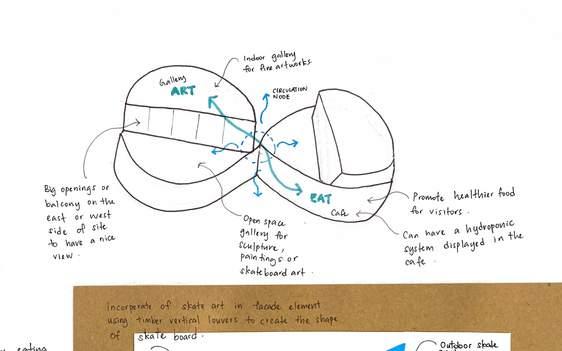 Indoor gallery
for fine artworks
Gallery
ART
CIRCULATION
NODE
Big openings or
balcony on the
east or west
side of site
to have a nice
view.
Open space
gallery for
sculpture,
paintings or
skateboard art.
EAT
Cafe
Promote healthier food
for visitors.
Can have a hydroponic
system displayed in the
cafe.
Incorporate of skate art in facade element
using timber vertical louvers to create the shape
of skate board.
eating
Outdoor skate